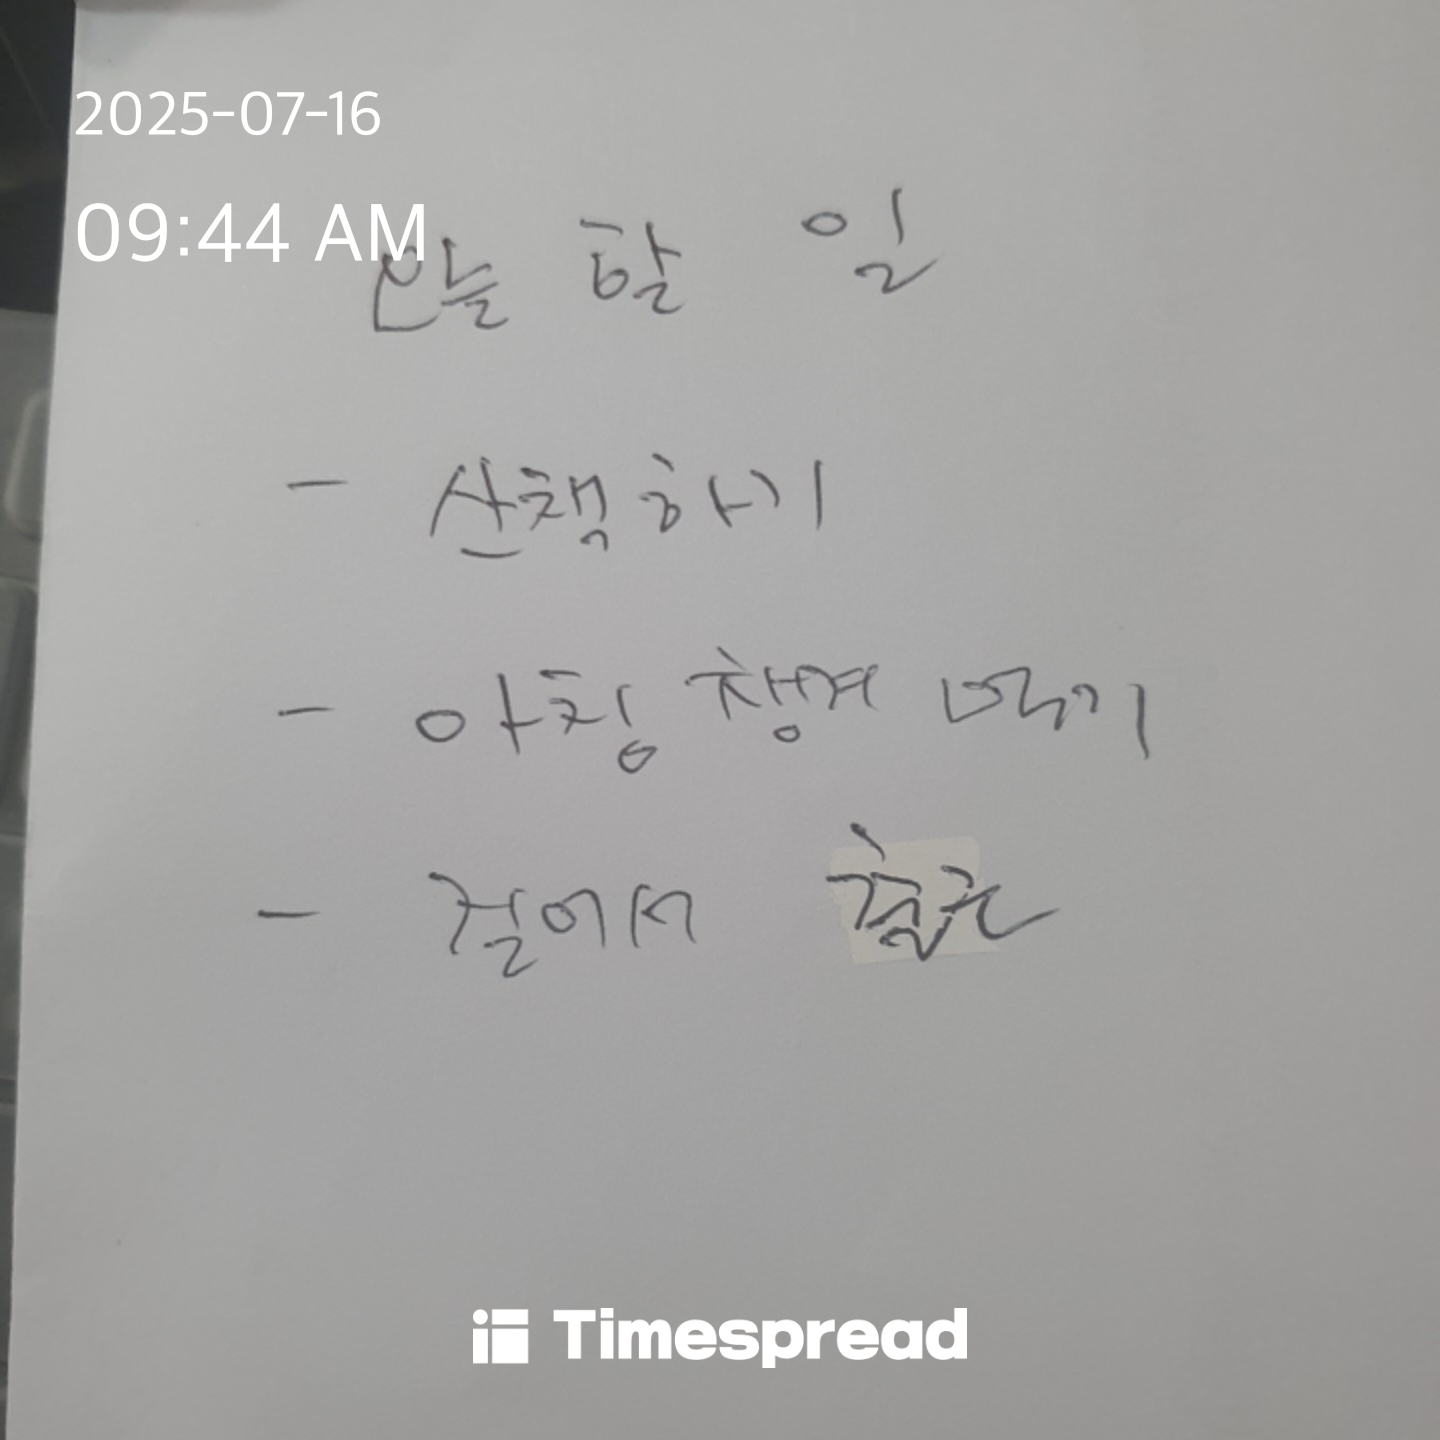 2025-07-16
09:44 AM
오늘 할 일
- 산책하기
- 아침 챙겨 먹기
- 걸어서 출근
Timespread